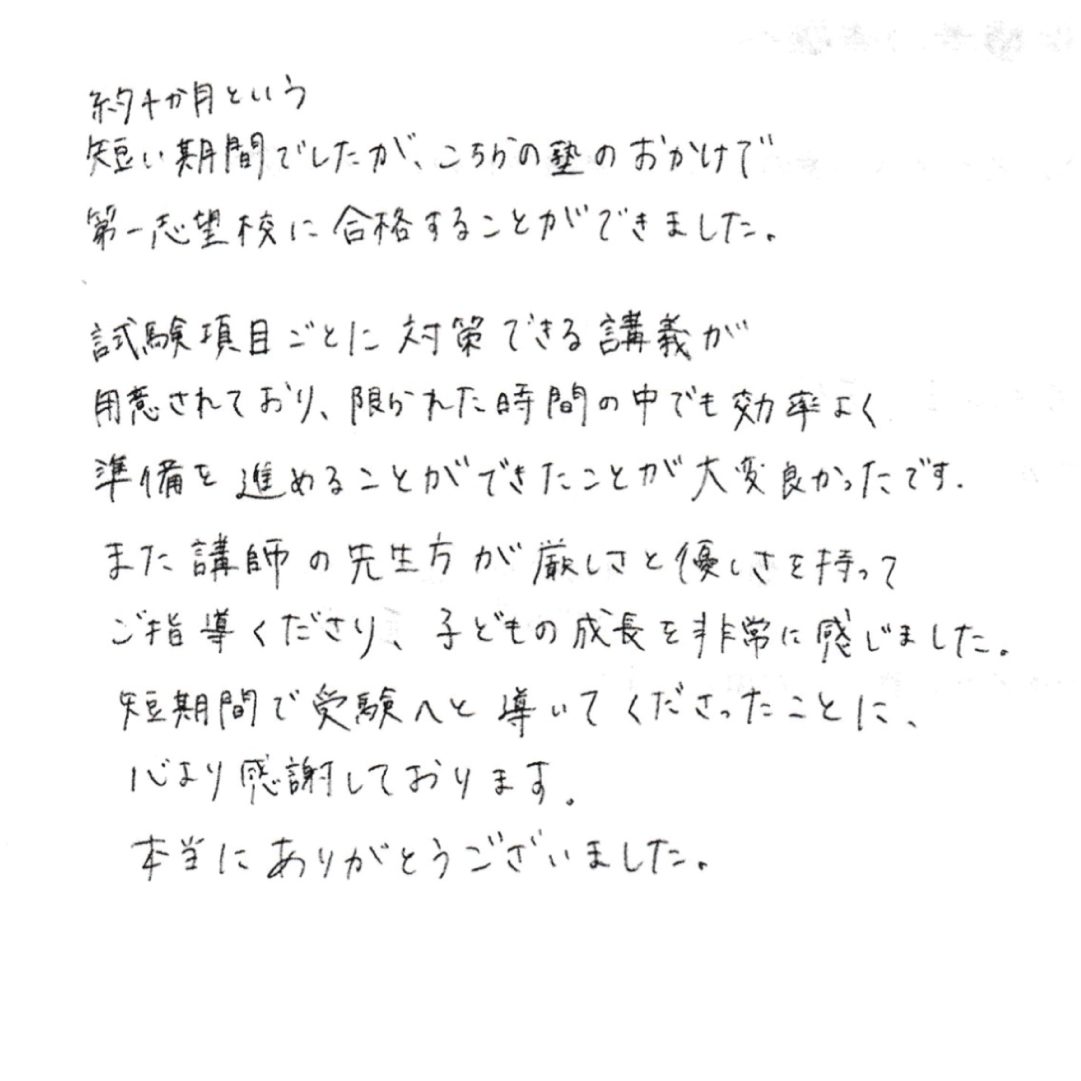 約4か月という
短い期間でしたが、こちらの塾のおかげで
第一志望校に合格することができました。
試験項目ごとに対策できる講義が
用意されており、限られた時間の中でも効率よく
準備を進めることができたことが大変良かったです.
また講師の先生方が厳しさと優しさを持って
ご指導くださり、子どもの成長を非常に感じました。
短期間で受験へと導いてくださったことに、
心より感謝しております。
本当にありがとうございました。